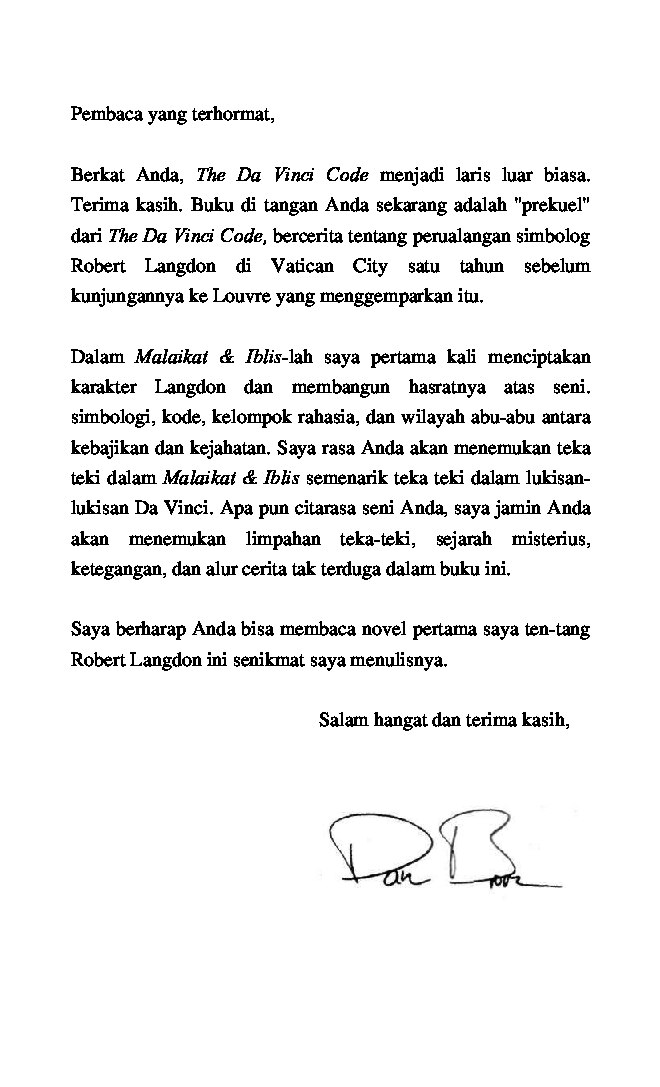 Pembaca yang terhormat,
Berkat Anda, The Da Vinci Code menjadi laris luar biasa.
Terima kasih. Buku di tangan Anda sekarang adalah "prekuel"
dari The Da Vinci Code, bercerita tentang perualangan simbolog
Robert Langdon di Vatican City satu tahun sebelum
kunjungannya ke Louvre yang menggemparkan itu.
Dalam Malaikat & Iblis-lah saya pertama kali menciptakan
karakter Langdon dan membangun hasratnya atas seni.
simbologi, kode, kelompok rahasia, dan wilayah abu-abu antara
kebajikan dan kejahatan. Saya rasa Anda akan menemukan teka
teki dalam Malaikat & Iblis semenarik teka teki dalam lukisan-
lukisan Da Vinci. Apa pun citarasa seni Anda, saya jamin Anda
akan menemukan limpahan teka-teki, sejarah misterius,
ketegangan, dan alur cerita tak terduga dalam buku ini.
Saya berharap Anda bisa membaca novel pertama saya ten-tang
Robert Langdon ini senikmat saya menulisnya.
Salam hangat dan terima kasih,
Dan